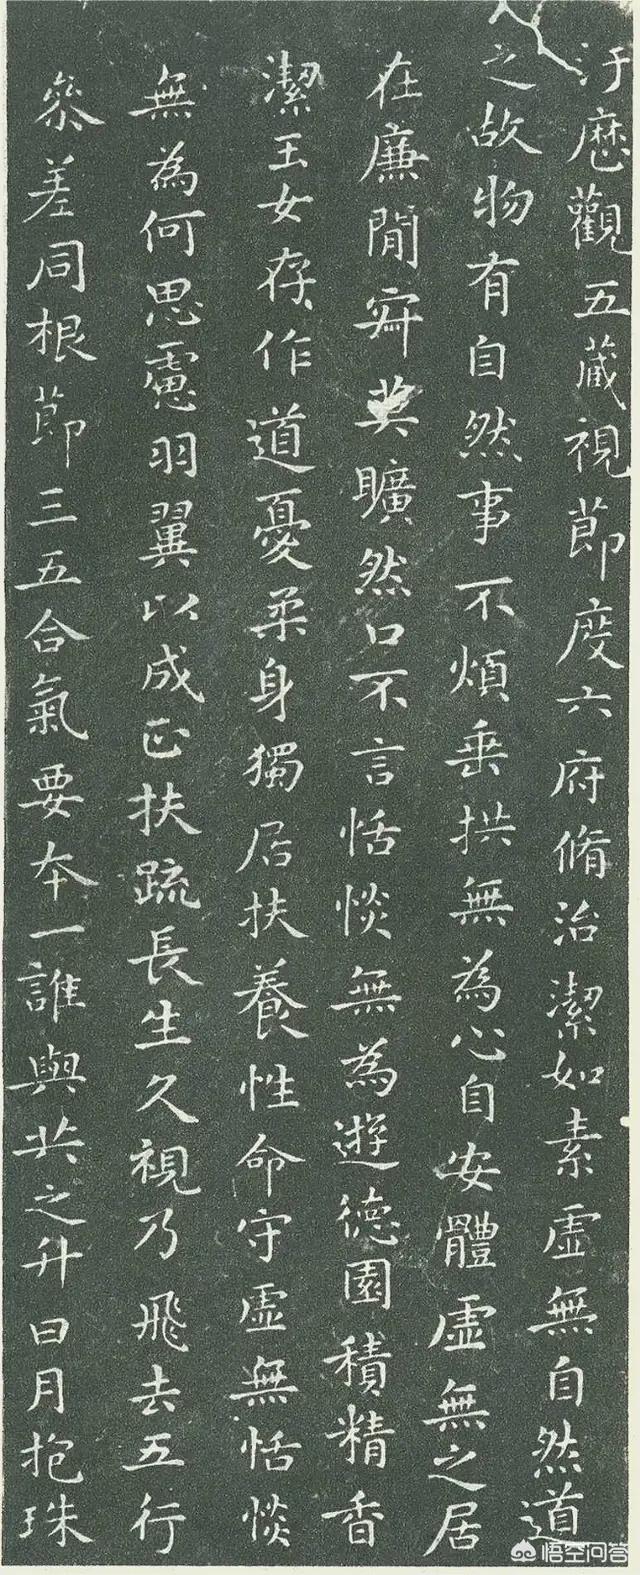 汙歷觀五藏視節度六府脩治潔如素虛無自然道
之故物有自然事不煩垂拱無為心自安體虛無之居
在廉閒寂莫曠然口不言恬惔無為遊德園積精香
潔玉女存作道憂柔身獨居扶養性命守虛無恬惔
無為何思慮羽翼以成正扶疏長生久視乃飛去五行
參差同根節三五合氣要本一誰與共之升日月抱珠
悟空问答